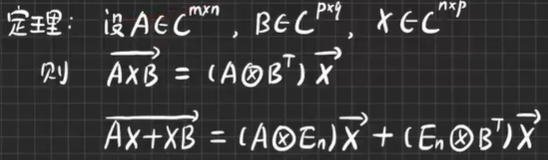 定理：设 A∈C^{m×n}，B∈C^{p×q}，X∈C^{n×p}
则 \overrightarrow{AXB} = (A⊗B^T)\overrightarrow{X}
\overrightarrow{AX+XB} = (A⊗E_n)\overrightarrow{X} + (E_n⊗B^T)\overrightarrow{X}